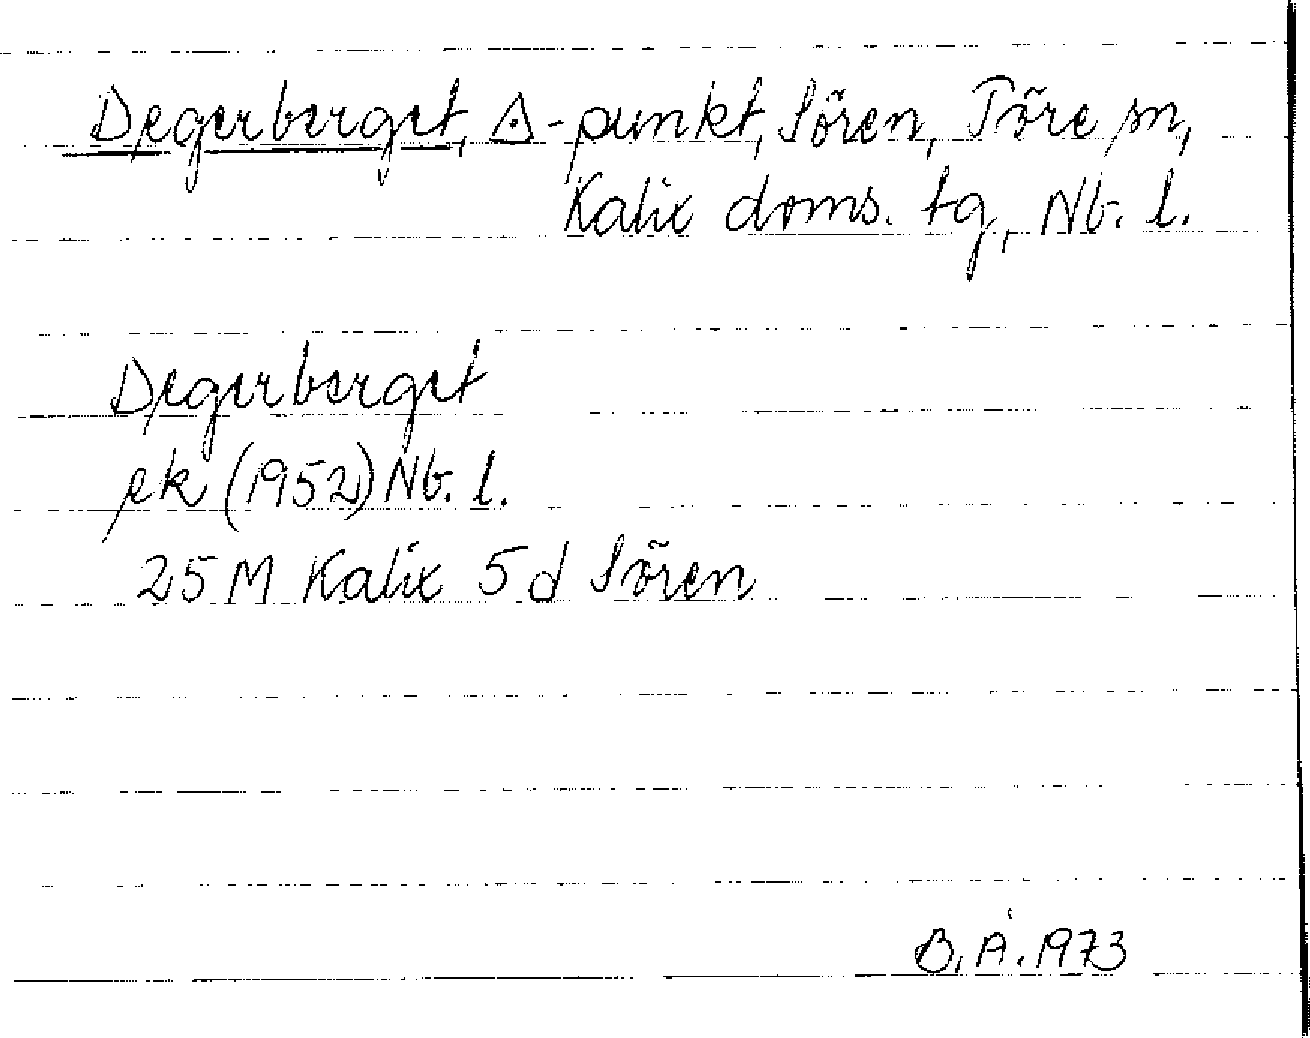 Degerberget, △-punkt, Sören, Töre sn,
Kalix doms. tg, Nb. l.
Degerberget
ek (1952) Nb. l.
25 M Kalix 5 d Sören
B. Å. 1973